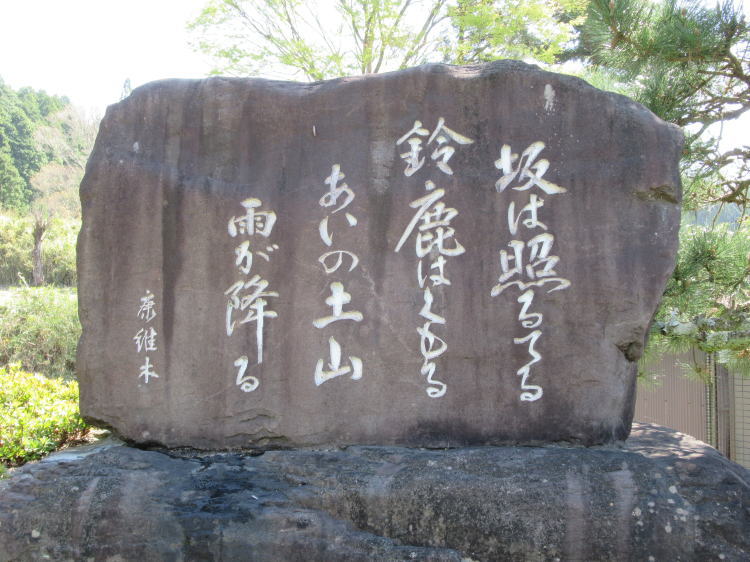 坂は照るてる
鈴鹿はくもる
あいの土山
雨が降る
康維木